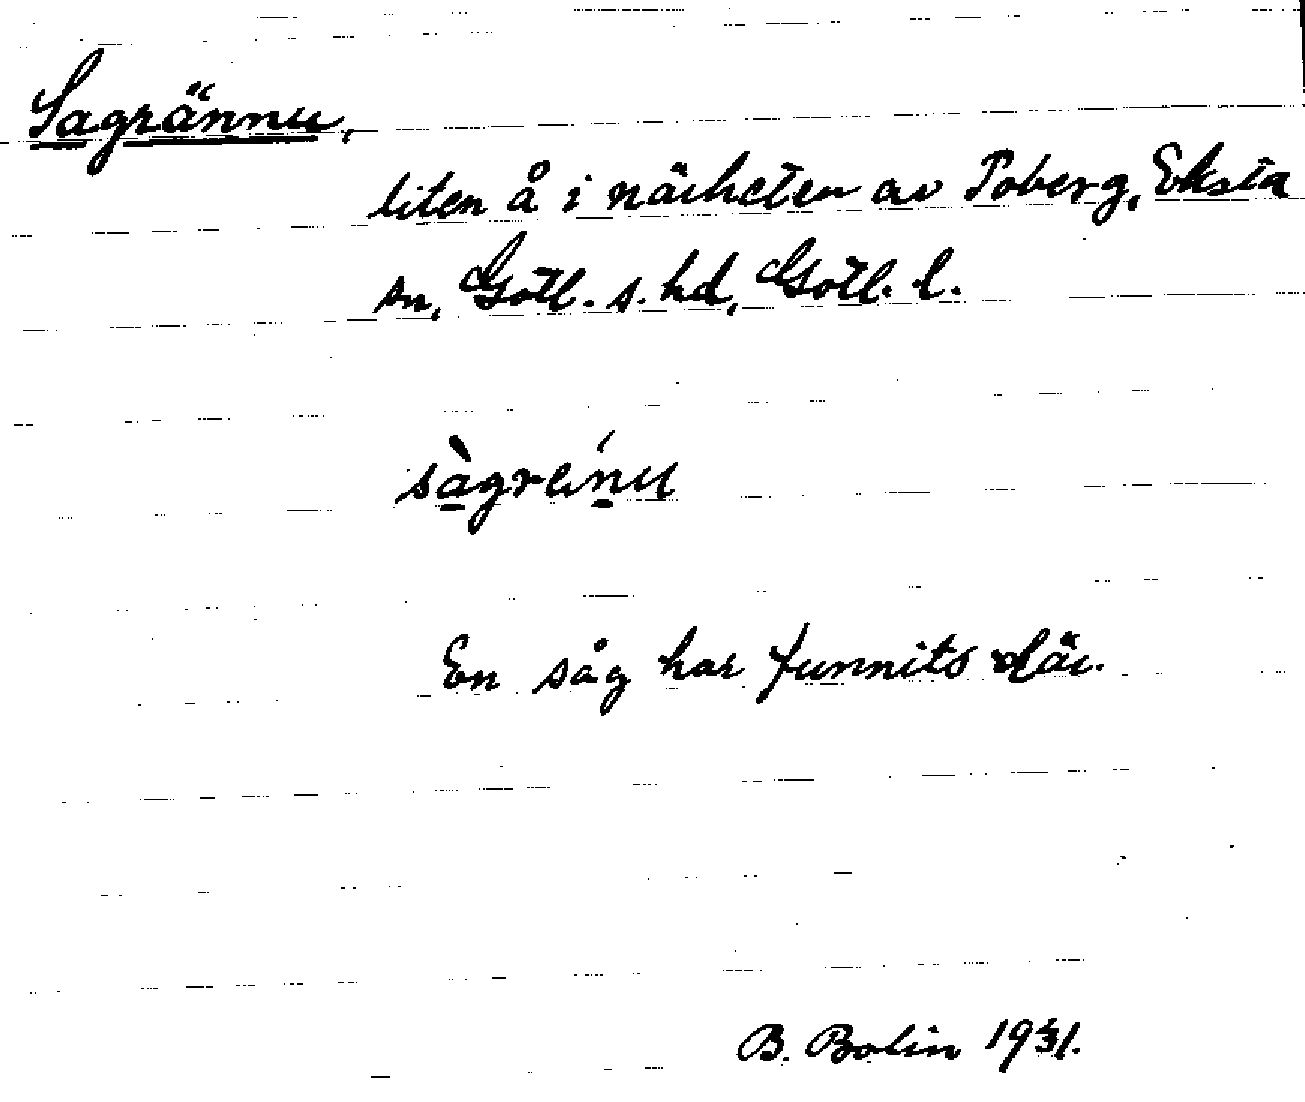 Sagrännu,
liten å i närheten av Poberg, Eksta
sn, Gotl. s. hd, Gotl. l.
sàgreńu
En såg har funnits där.
B. Bolin 1931.